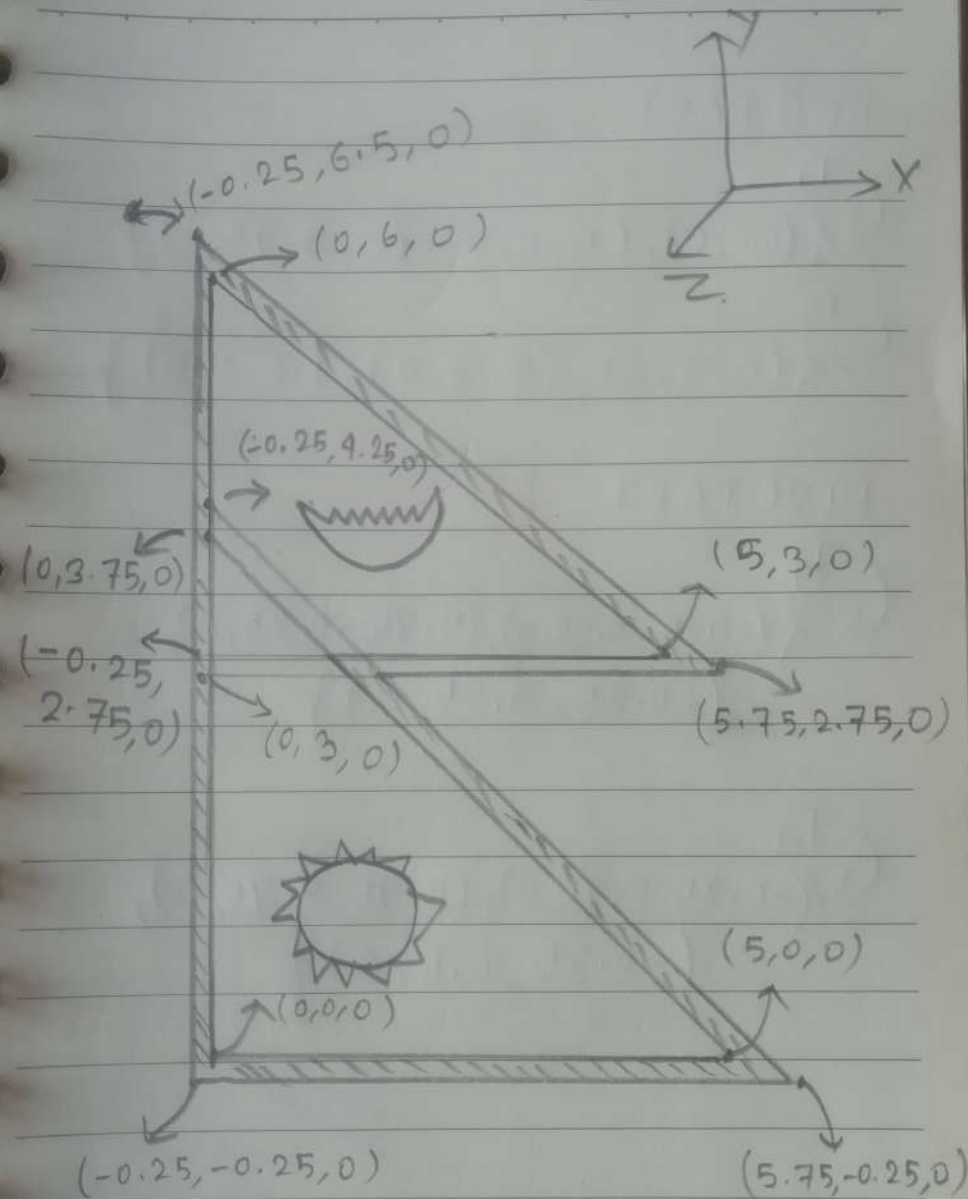 y
X
Z
(-0.25, 6.5, 0)
(0, 6, 0)
(-0.25, 4.25, 0)
(0, 3.75, 0)
(5, 3, 0)
(-0.25,
2.75, 0)
(0, 3, 0)
(5.75, 2.75, 0)
(5, 0, 0)
(0, 0, 0)
(-0.25, -0.25, 0)
(5.75, -0.25, 0)